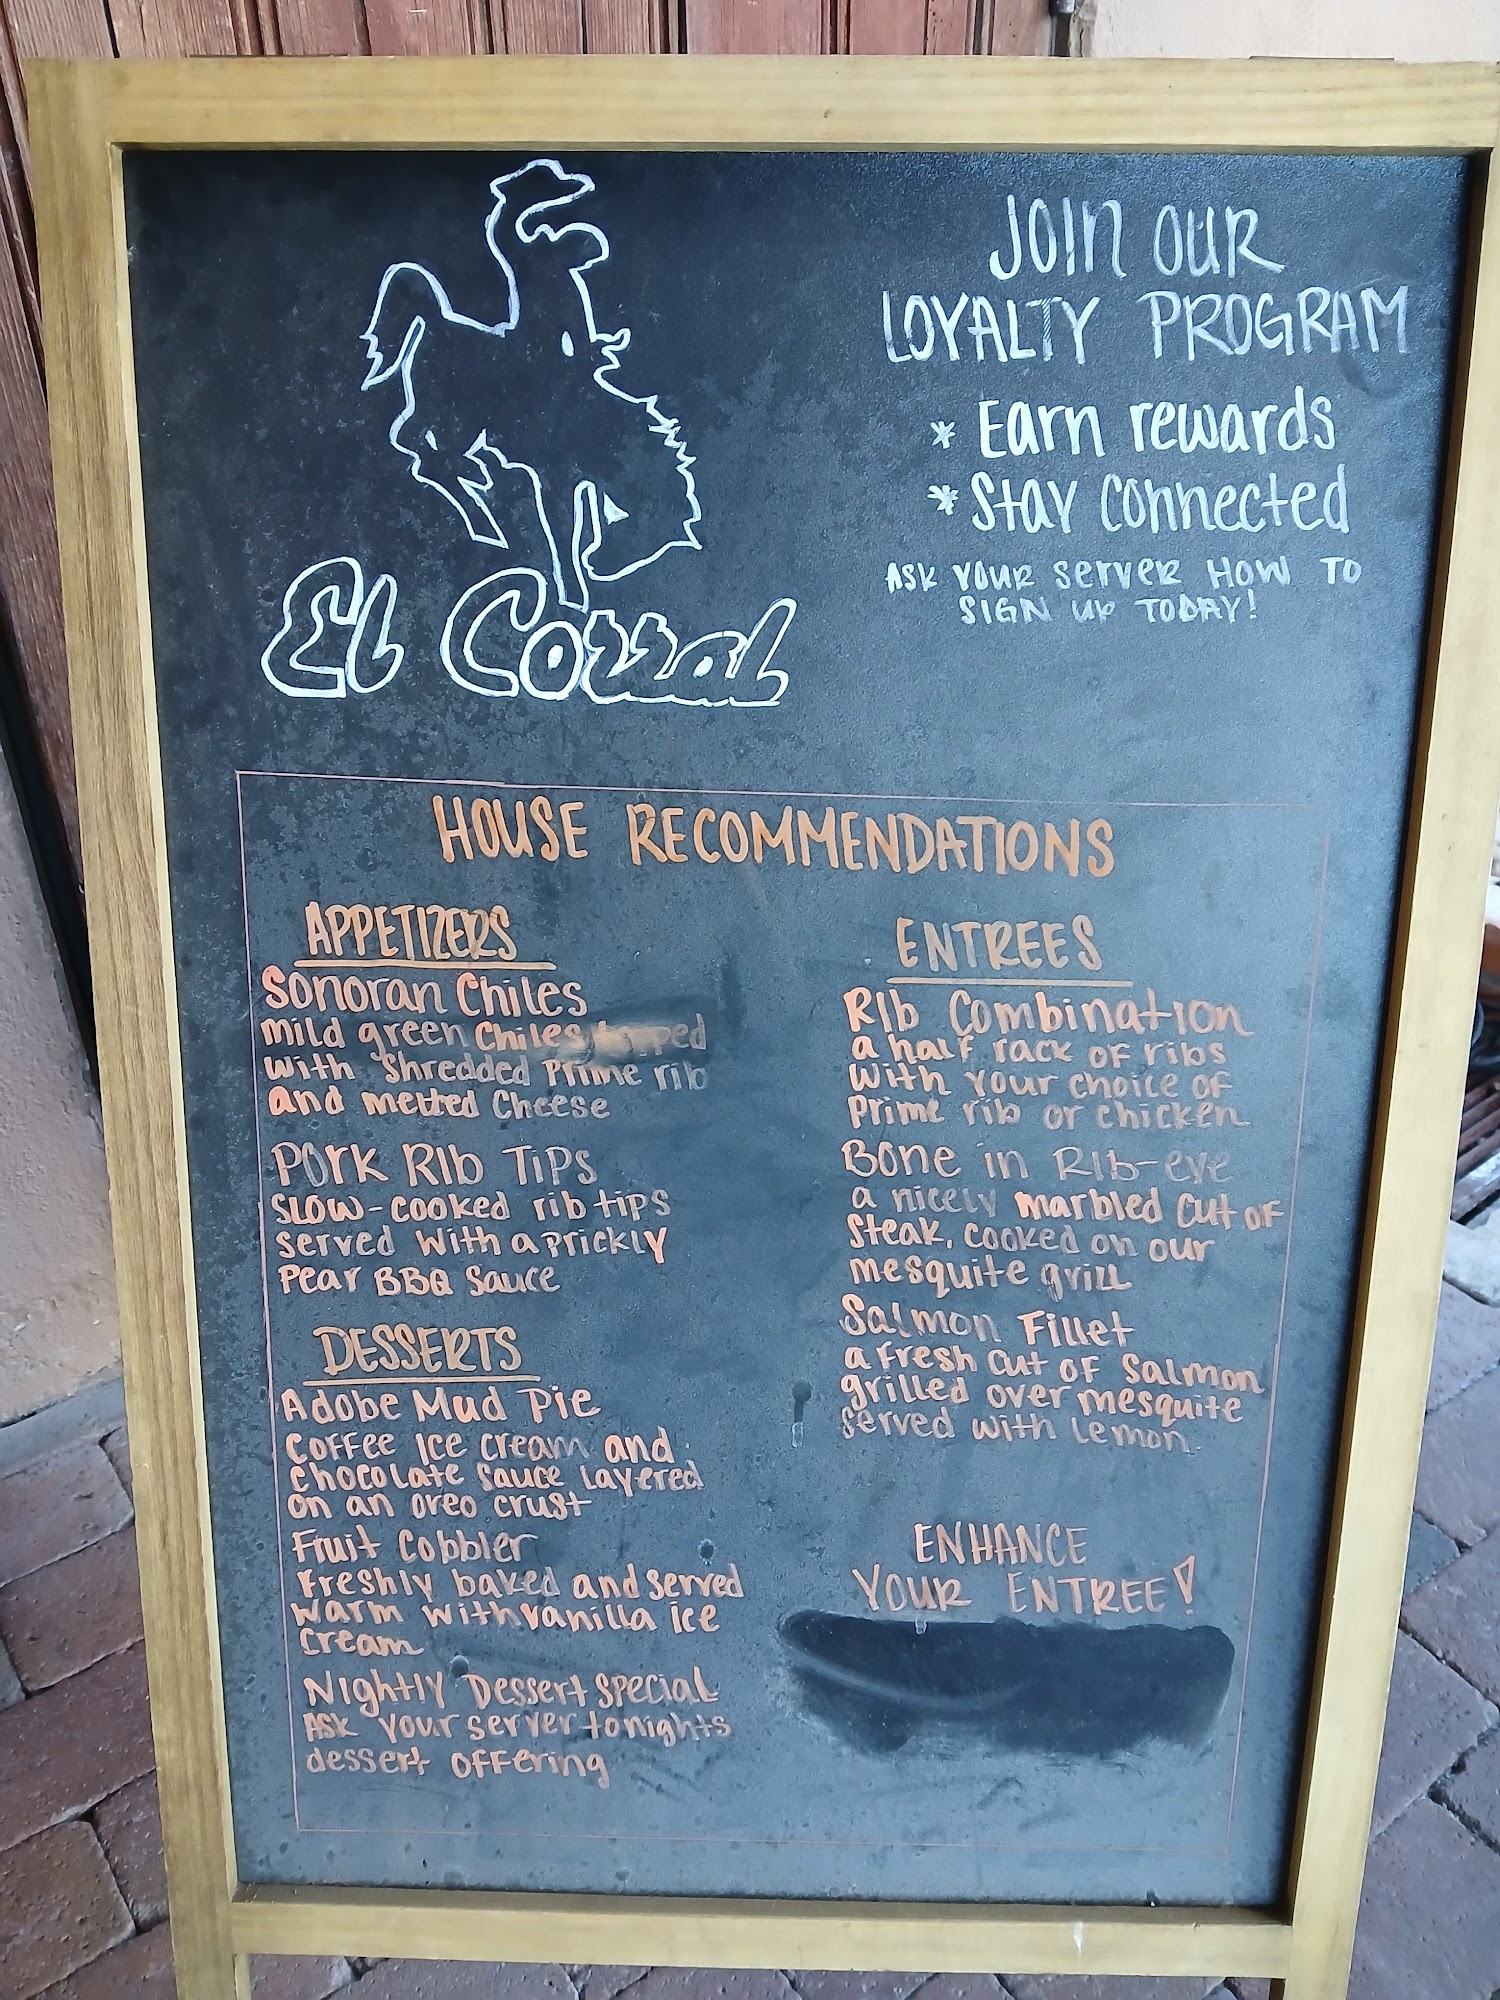 El Corral
JOIN OUR
LOYALTY PROGRAM
* Earn rewards
* Stay connected
ASK YOUR SERVER HOW TO
SIGN UP TODAY!
HOUSE RECOMMENDATIONS
APPETIZERS
Sonoran Chiles
mild green Chiles topped
with shredded Prime rib
and melted Cheese
PORK RIb TIPS
SLOW-cooked rib tips
served with a prickly
Pear BBQ Sauce
DESSERTS
Adobe Mud Pie
Coffee Ice cream and
chocolate sauce layered
on an oreo crust
Fruit Cobbler
Freshly baked and served
warm with vanilla ice
cream
Nightly Dessert special
ASK your server tonights
dessert offering
ENTREES
RIb Combination
a half rack of ribs
with your choice of
Prime rib or chicken
Bone in Rib-eye
a nicely marbled cut of
steak, cooked on our
mesquite grill
Salmon Fillet
a fresh cut of Salmon
grilled over mesquite
served with lemon.
ENHANCE
YOUR ENTREE!